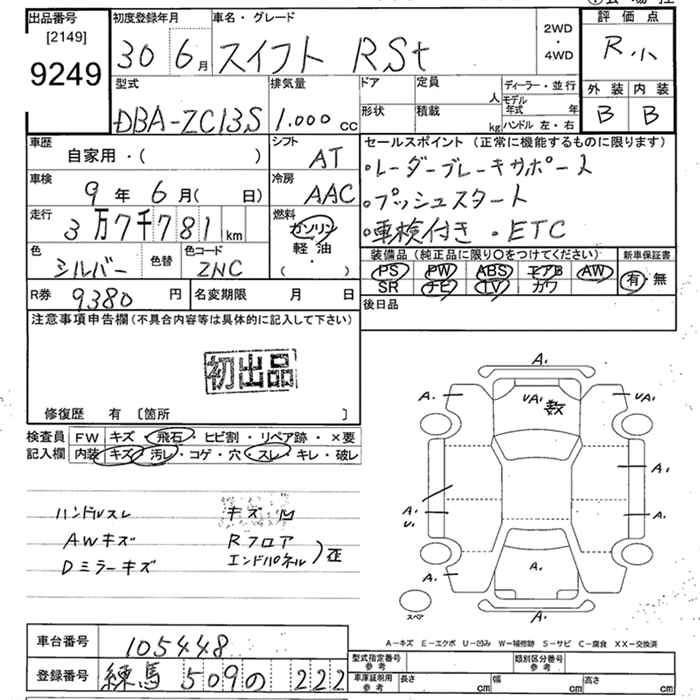 出品番号 初度登録年月 車名・グレード 2WD・4WD 評価点
[2149]
9249
30 6月 スイフト RSt R小
外装 内装
B B
型式 排気量 ドア 定員 人 ディーラー・並行
形状 積載 kg モデル年式 年
ハンドル 左・右
DBA-ZC13S 1.000 cc
車歴 シフト セールスポイント (正常に機能するものに限ります)
自家用・( ) AT ・レーダーブレーキサポート
車検 冷房 ・プッシュスタート
9年 6月( 日) AAC ・車検付き ・ETC
走行 燃料
3万7千781km ガソリン
軽・油
( ・ )
色 色替 色コード
シルバー ZNC
装備品 (純正品に限り○をつけてください) 新車保証書
PS PW ABS エアB AW 有・無
SR ナビ TV カワ
R券 9380円 名変期限 月 日 後日品
注意事項申告欄(不具合内容等は具体的に記入して下さい)
初出品
修復歴 有 [箇所 ]
検査員記入欄
FW キズ・飛石・ヒビ割・リペア跡・×要
内装 キズ・汚レ・コゲ・穴・スレ・キレ・破レ
A. A. UA. 数 UA. A. A. A. U. A. A. A.
スペア
ハンドルスレ キズ 凹
AWキズ Rフロア
Dミラーキズ エンドパネル)歪
A-キズ E-エクボ U-凹み W-補修跡 S-サビ C-腐食 XX-交換済
車台番号 105448
登録番号 練馬 509 の 222
型式指定番号 参考 類別区分番号 参考
車庫証明用 参考 長さ cm 幅 cm 高さ cm